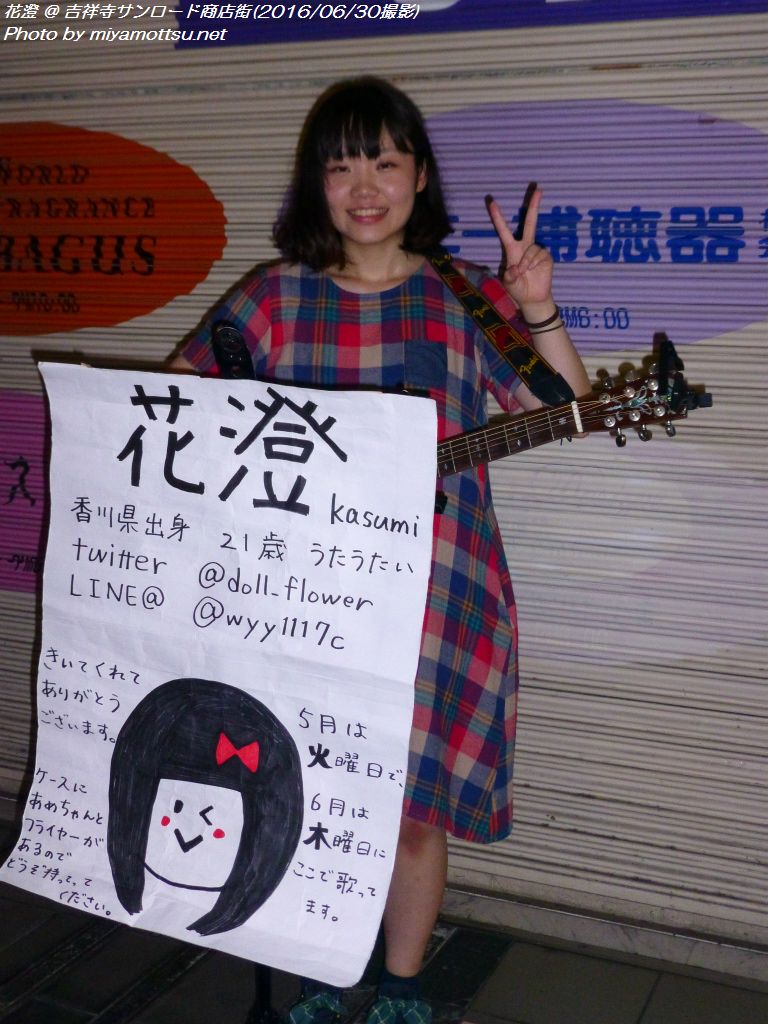 花澄 @ 吉祥寺サンロード商店街(2016/06/30撮影)
Photo by miyamottsu.net
WORLD
FRAGRANCE
補聴器
PM6:00
Fender
花澄 kasumi
香川県出身 21歳 うたうたい
twitter @doll_flower
LINE@ @wyy1117c
きいてくれて
ありがとう
ございます。
ケースに
あめちゃんと
フライヤーが
あるので
どうぞ持ってって
ください。
5月は
火曜日で、
6月は
木曜日に
ここで歌って
ます。